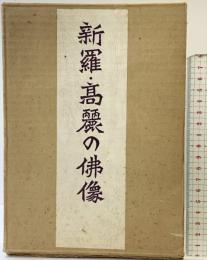 新羅・高麗の佛像